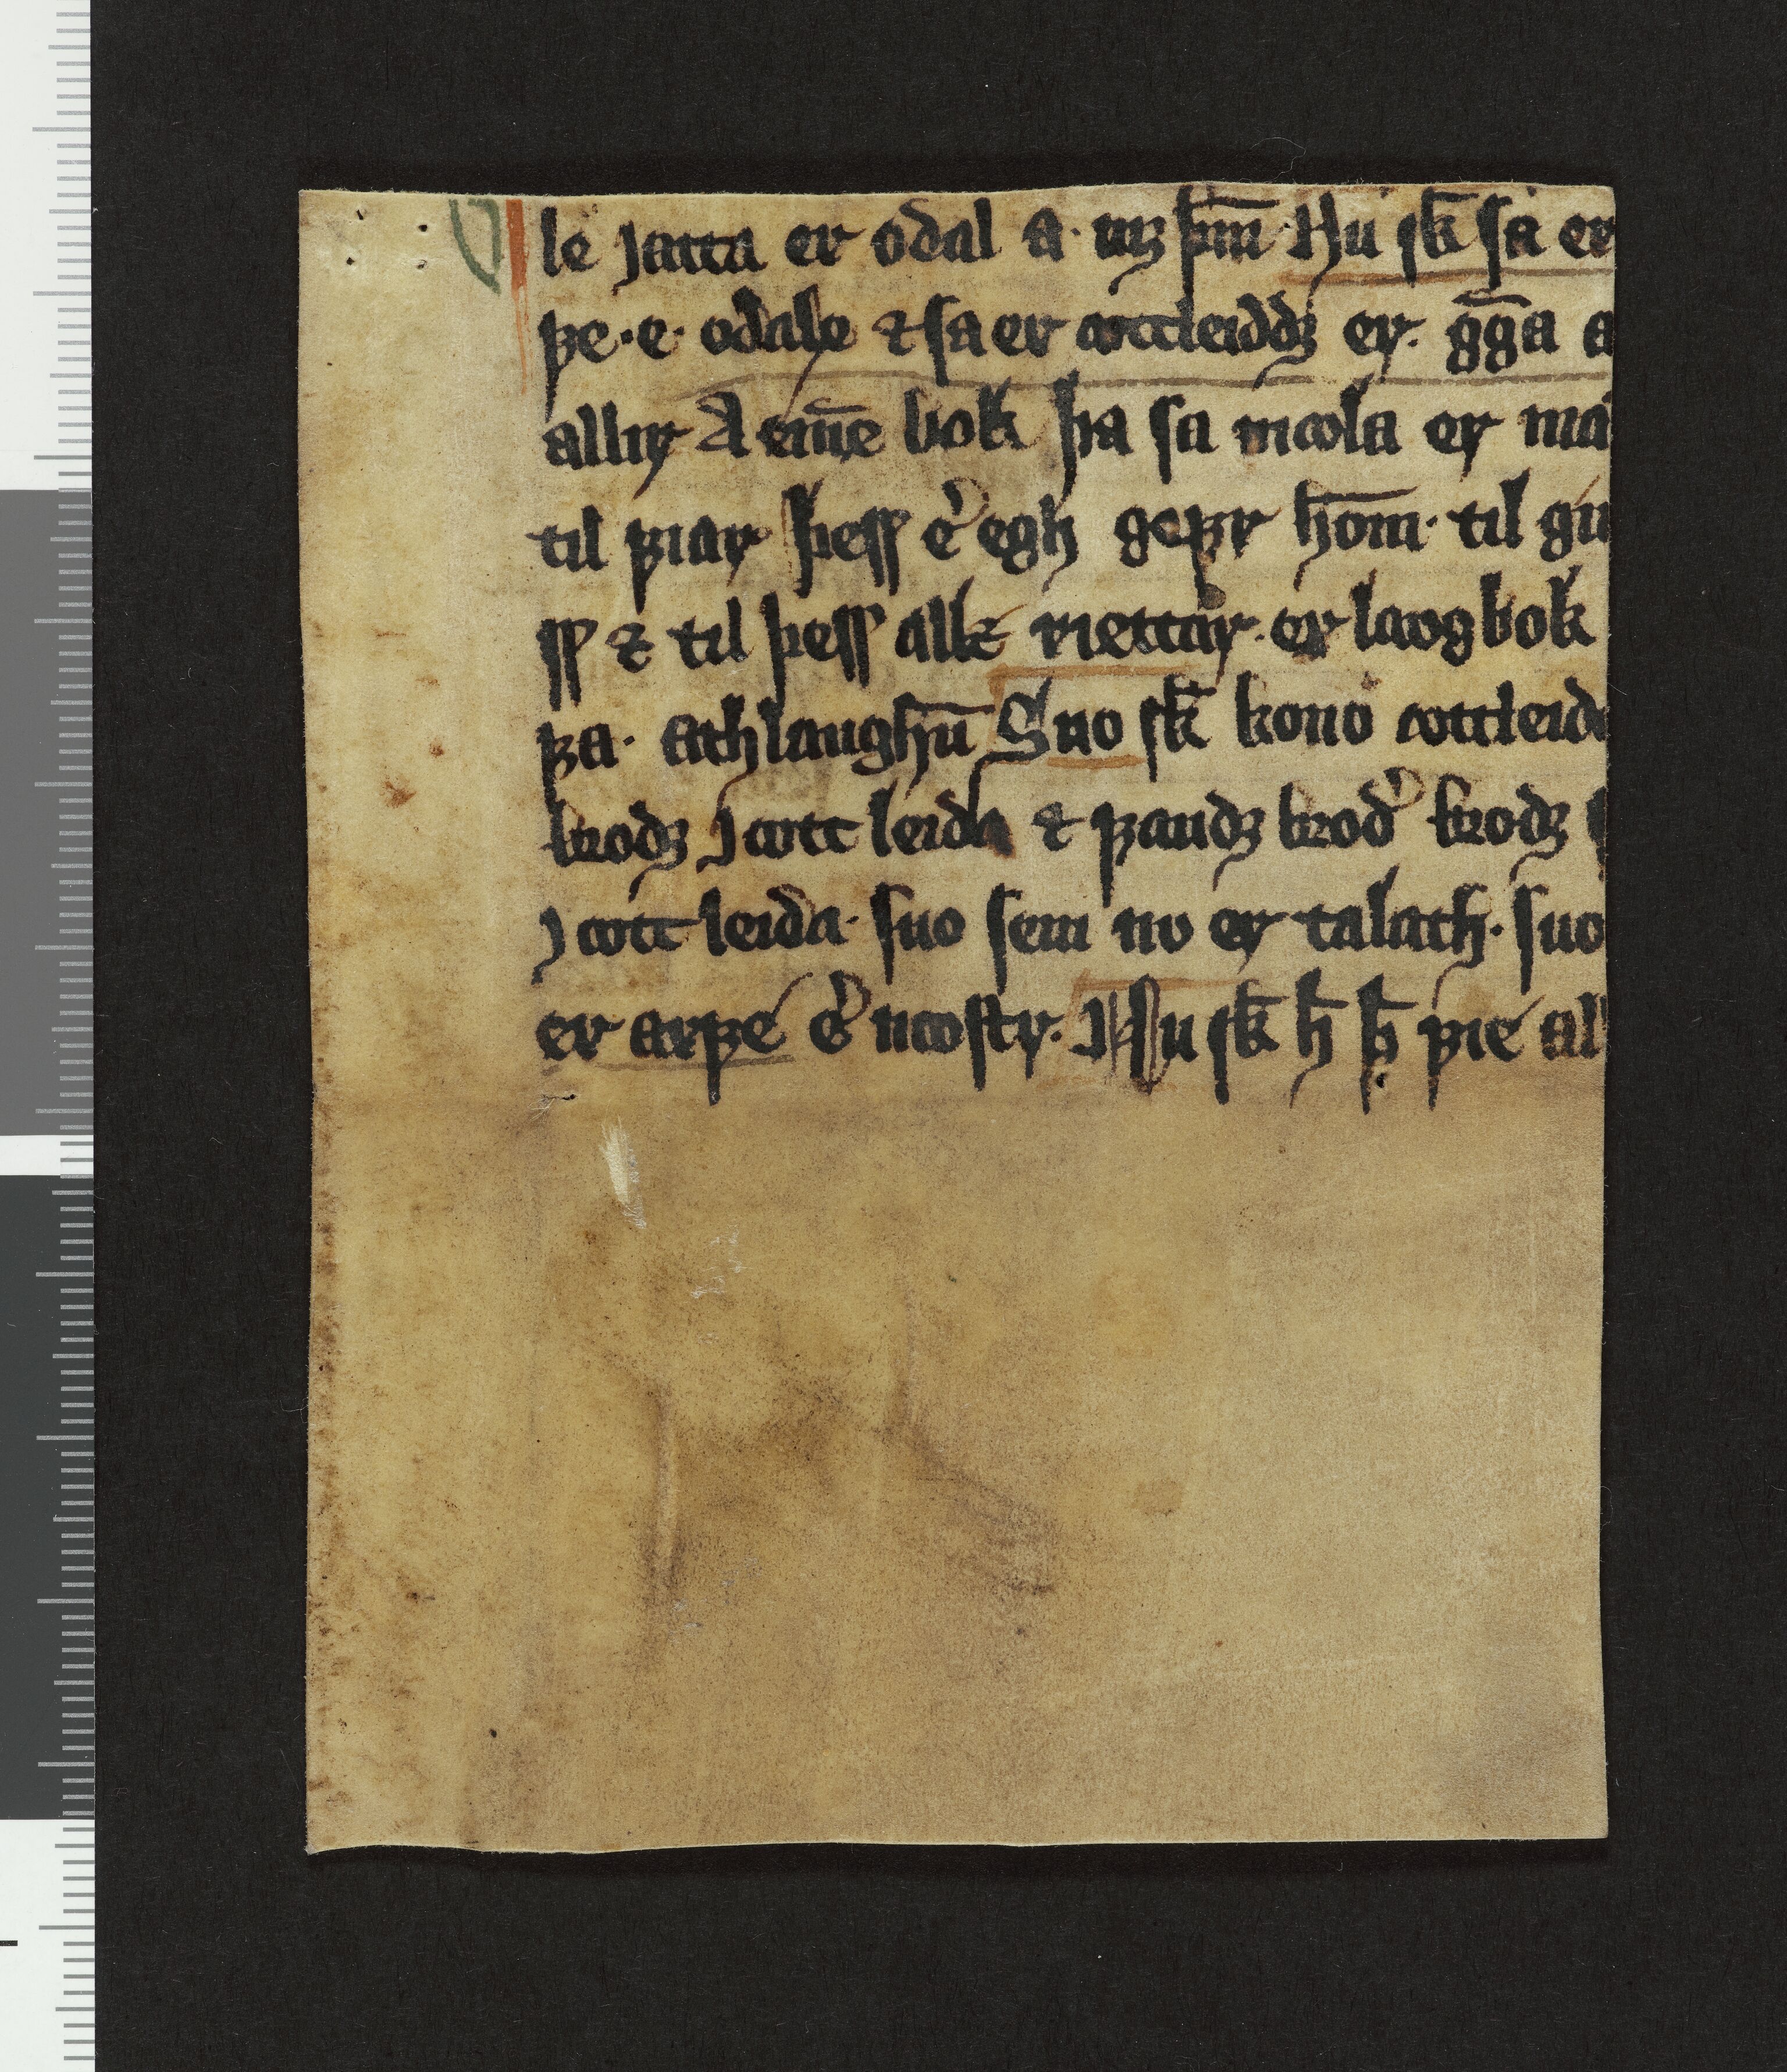 le jatta er odal a. uıþ þm̅ Nu sk̅ sa er
ꝼe.e. odale ⁊ sa er ættleiddꝫ er. gg̅a a
allır A em̅e bok þa sa mæla er ma
til ꝼiar þess eͬ egh geꝼr ho̅m. til gu
ss ⁊ til þess allꝫ riettar. er laugbok
ꝼa. athlaughu̅ Suo sk̅ kono ættleid
brodꝫ j ætt leida ⁊ ꝼaudꝫ brod brodꝫ
j ætt leida. suo sem nu er talath. suo
er arꝼe eͬ næstr. Nu sk̅ h̅ þ̅ ꝼie al